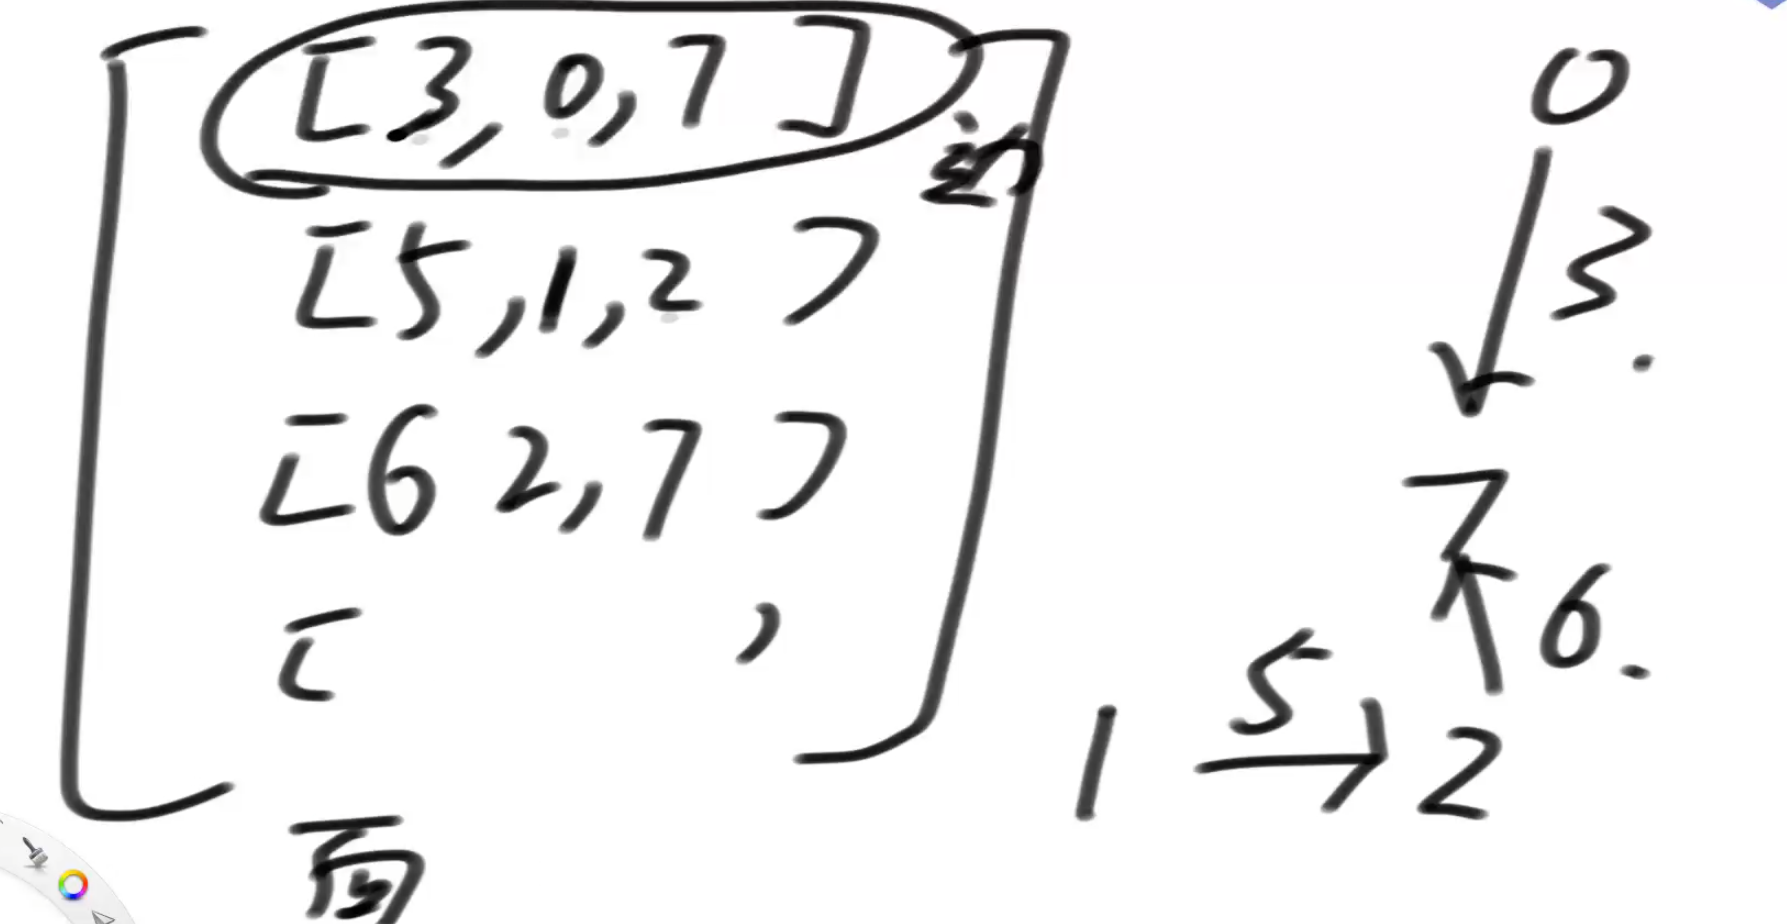 [3, 0, 7]
[5, 1, 2]
[6 2, 7]
[ ,
面
0
3.
7
6.
1 5 2